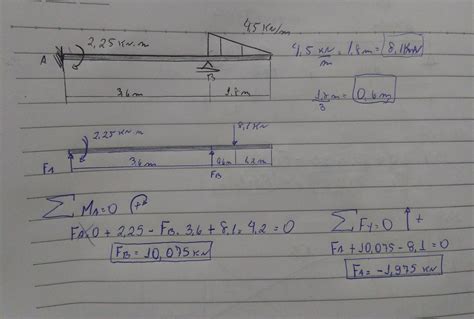 4,5 KN/m
2,25 KN.m
A
B
3,6m
1,8m
4,5 KN/m . 1,8m = 8,1KN
1,8m/3 = 0,6m
2,25 KN.m
8,1 KN
FA
3,6m
FB
0,6m
1,2m
∑ MA=0 ↻+
FA.0 + 2,25 - FB.3,6 + 8,1.4,2 = 0
FB = 10,075 KN
∑ Fy=0 ↑+
FA + 10,075 - 8,1 = 0
FA = -1,975 KN